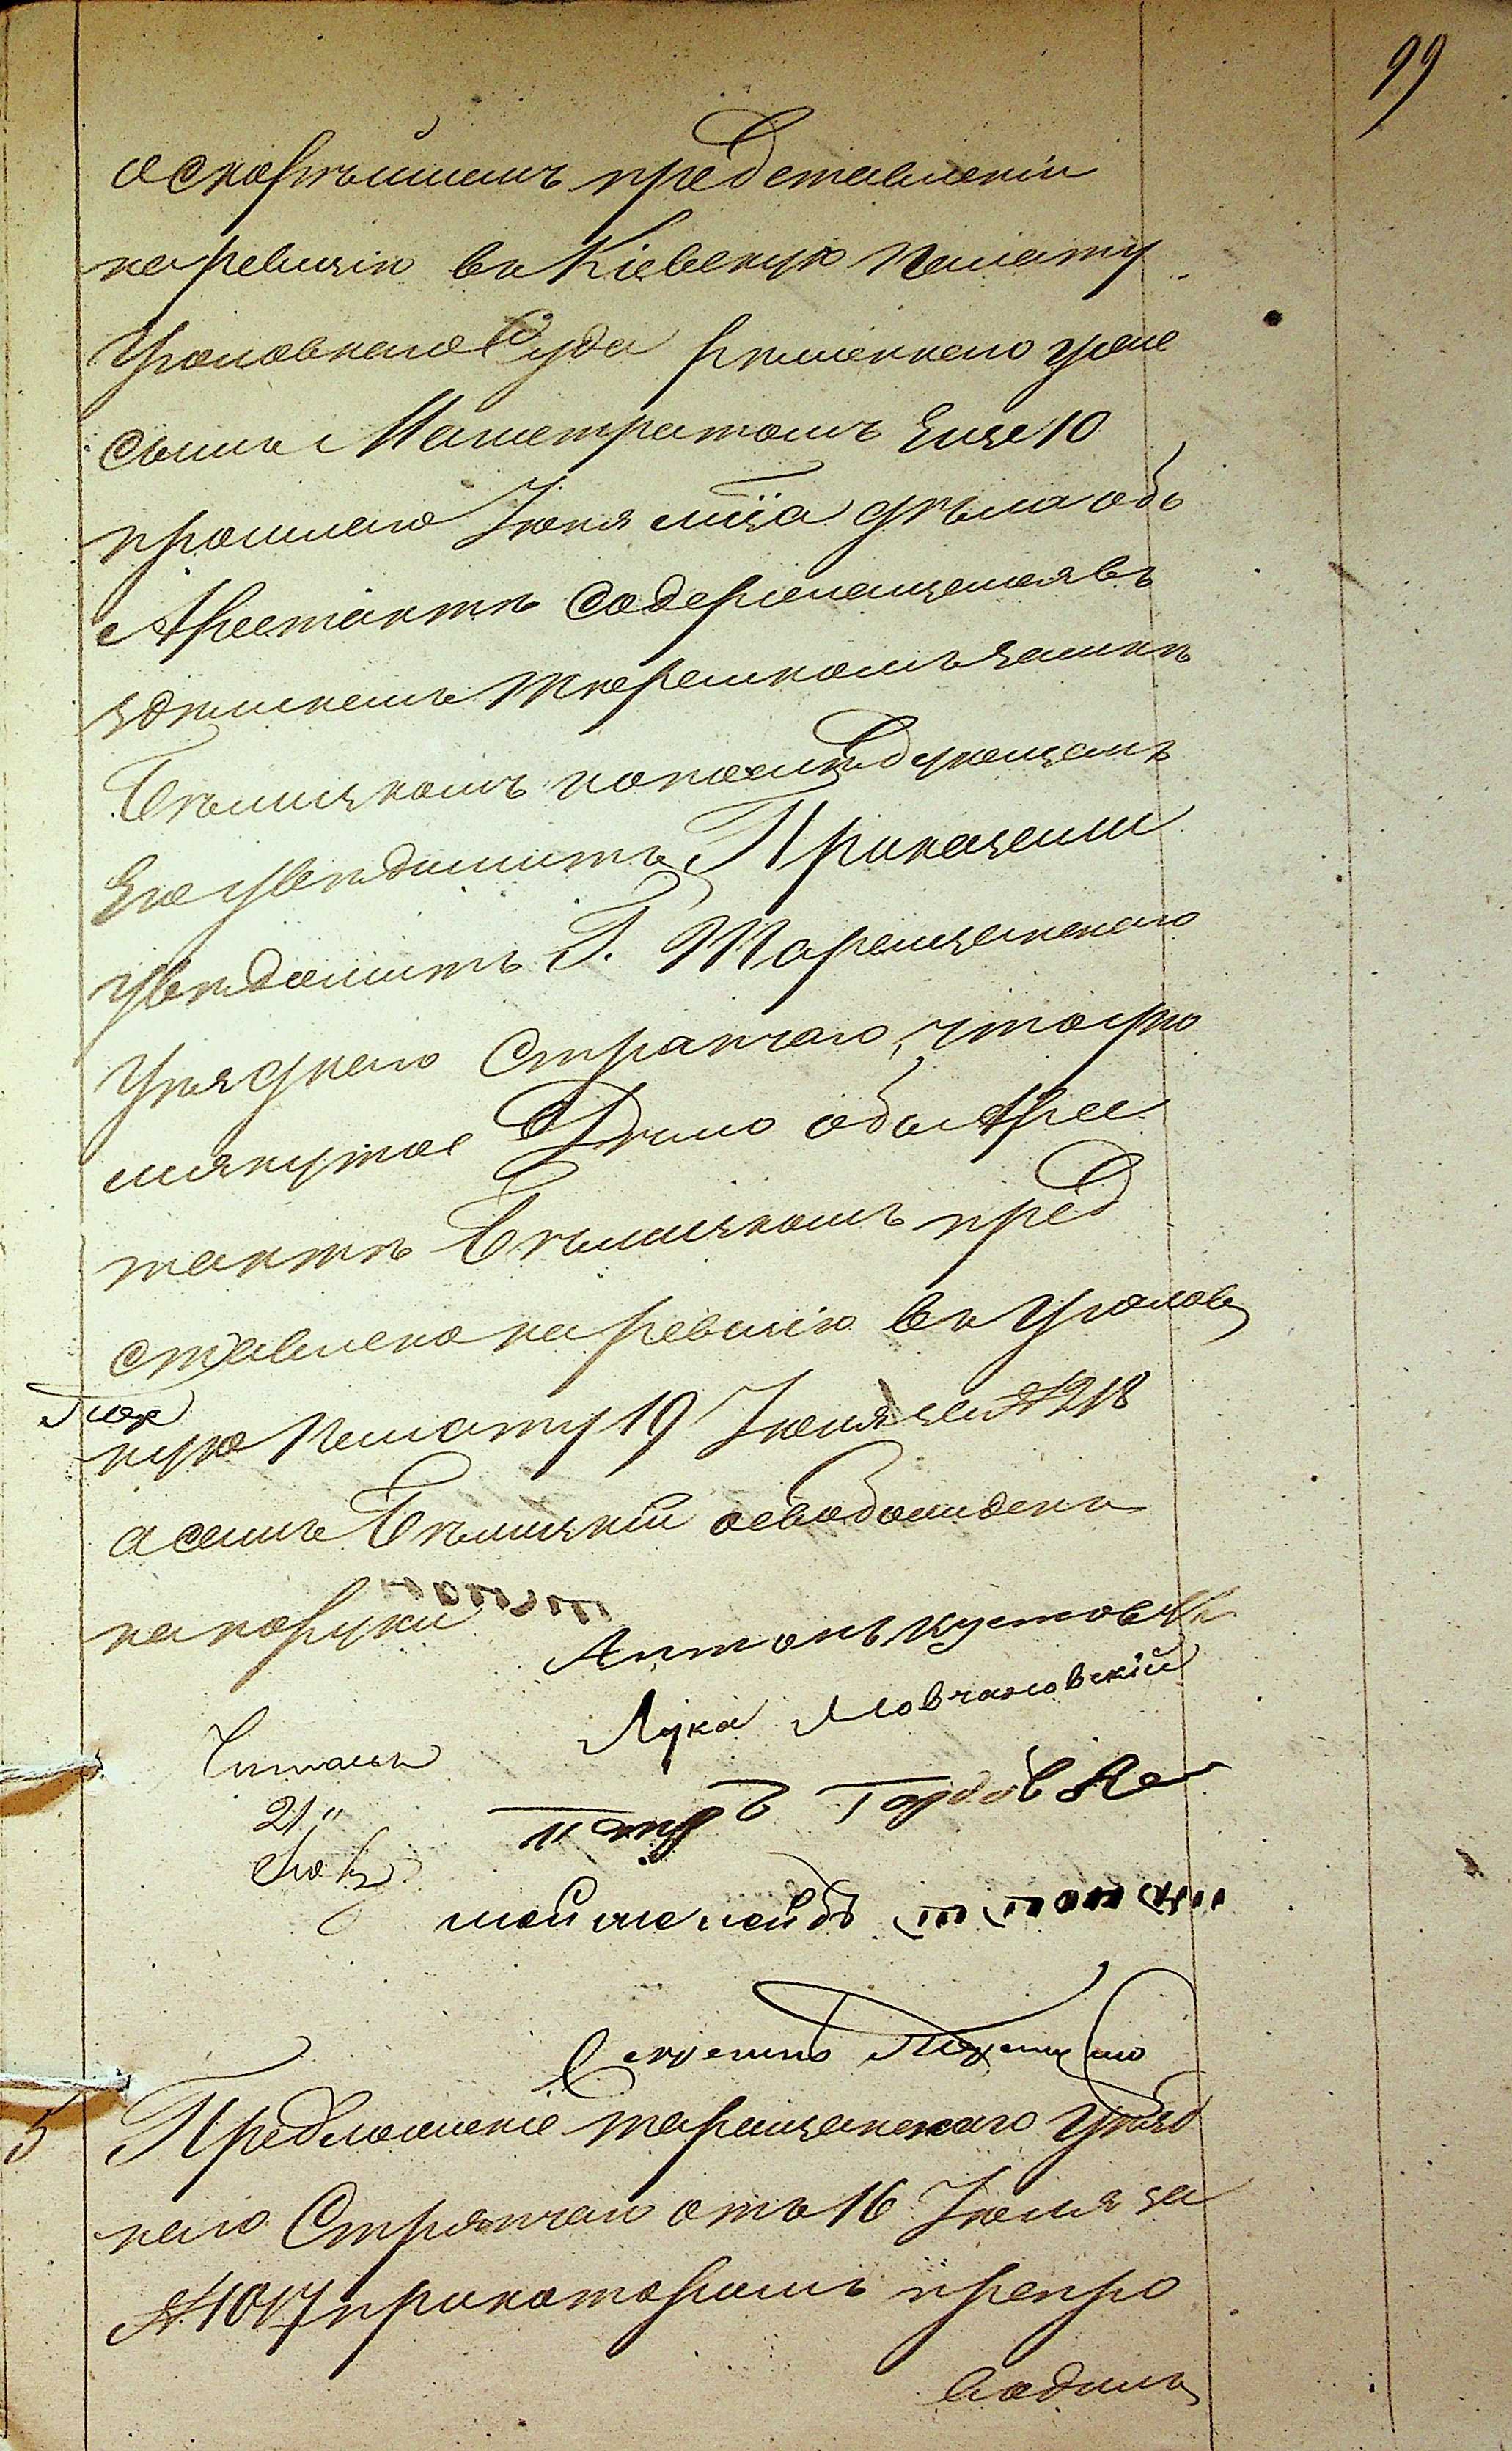 99
о скорѣйшемъ представленіи
на ревизію въ Кіевскую Палату
Уголовнаго Суда рѣшеннаго уже
симъ Магистратомъ еще 10
прошлаго Іюня мца дѣла объ
Арестантѣ содержащемся въ
здѣшнемъ тюремномъ замкѣ
Бѣлицкомъ и о послѣдующемъ
его увѣдомить, Приказали
увѣдомить Г. Таращанскаго
Уѣзднаго Стряпчаго, что упо
мянутое Дѣло объ Арес
тантѣ Бѣлицкомъ пред
ставлено на ревизію въ Уголов
ную Палату 19 Іюня за № 218
а самъ Бѣлицкій освобожденъ
на поруки
Антонъ
Лука Мовчановскій
Читалъ
21"
Петръ
Секретарь
5 Предложеніе таращанскаго Уѣзд
наго Стряпчаго отъ 16 Іюля за
№ 1017 при которомъ препро
водилъ